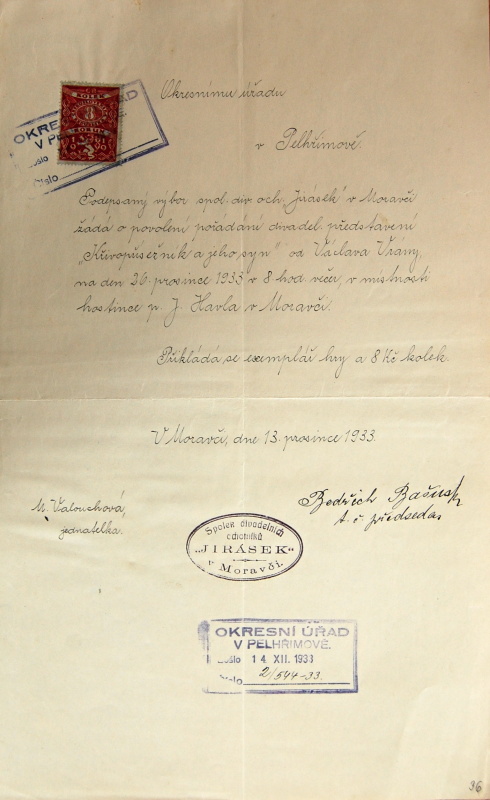 Okresnímu úřadu
v Pelhřimově.
KOLEK
8
KORUN
OKRESNÍ ÚŘAD
V PELHŘIMOVĚ
Došlo
Číslo
Podepsaný výbor spol. div. och. "Jirásek" v Moravči
žádá o povolení pořádání divadel. představení
"Křivopřísežník a jeho syn" od Václava Vrány,
na den 26. prosince 1933 v 8 hod. večer, v místnosti
hostince p. J. Havla v Moravči.
Přikládá se exemplář hry a 8 Kč kolek.
V Moravči, dne 13. prosince 1933.
M. Valouchová,
jednatelka.
Bedřich
t. č. předseda,
Spolek divadelních
ochotníků
„JIRÁSEK"
v Moravči.
OKRESNÍ ÚŘAD
V PELHŘIMOVĚ.
Došlo 14. XII. 1933
Číslo 2/544-33
96